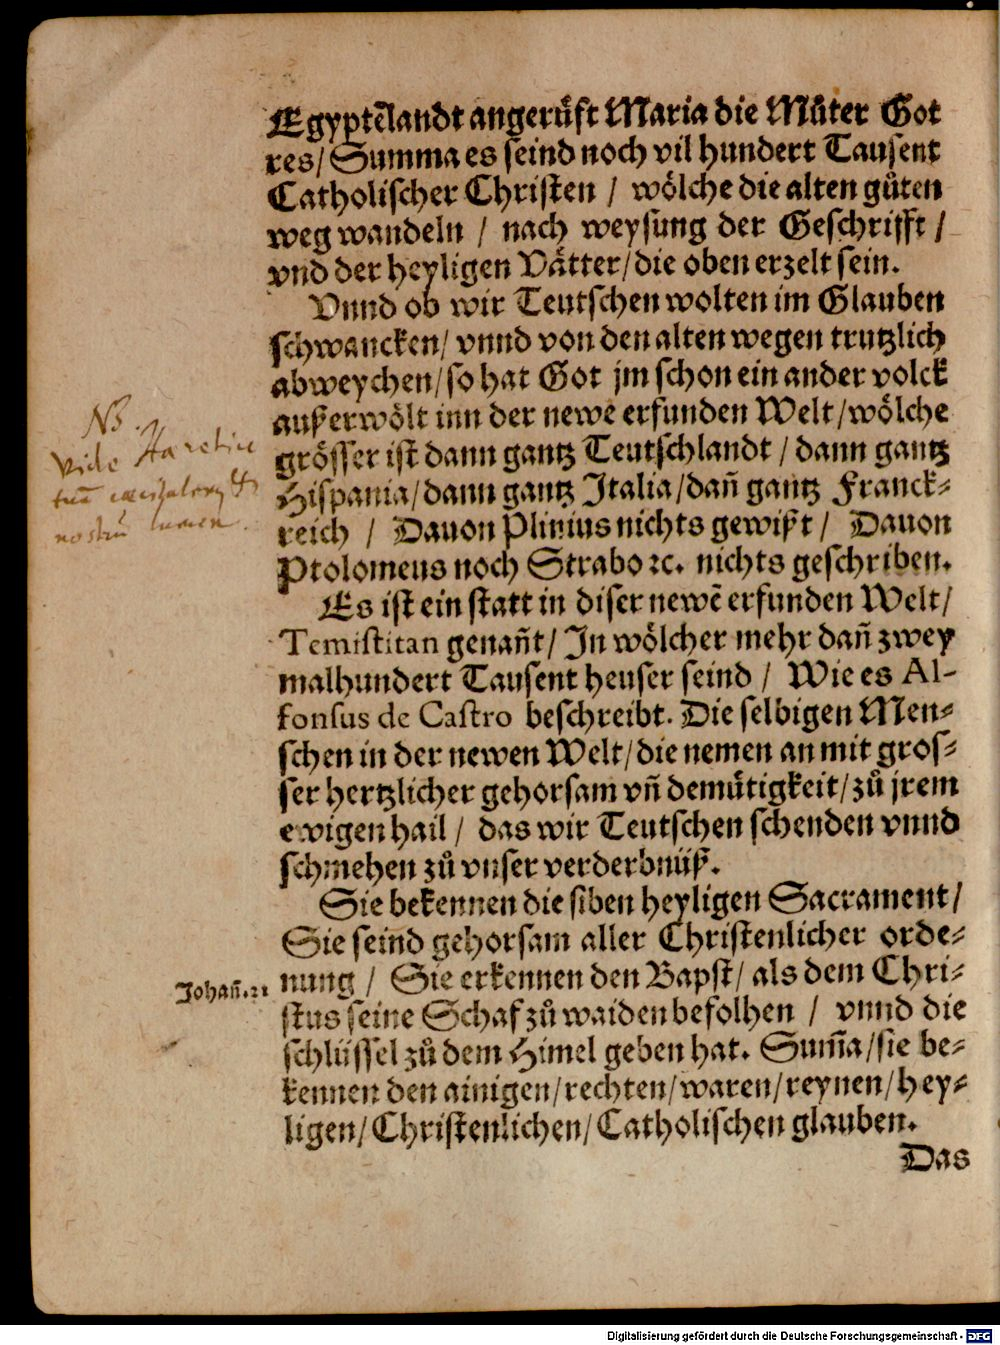 Egyptẽlandt angerůfft Maria die Můter Got
tes/ Summa es seind noch vil hundert Tausent
Catholischer Christen / wölche die alten gůten
weg wandeln / nach weysung der Geschrifft /
vnd der heyligen Vätter/die oben erzelt sein.
Vnnd ob wir Teutschen wolten im Glauben
schwancken/ vnnd von den alten wegen trutzlich
abweychen/so hat Got jm schon ein ander volck
außerwölt inn der newẽ erfunden Welt/wölche
grösser ist dann gantz Teutschlandt / dann gantz
Hispania/dann gantz Italia/dañ gantz Franck-
reich / Dauon Plinius nichts gewißt / Dauon
Ptolomeus noch Strabo ⁊c. nichts geschriben.
Es ist ein statt in diser newẽ erfunden Welt/
Temistitan genañt/ In wölcher mehr dañ zwey
malhundert Tausent heuser seind / Wie es Al-
fonsus de Castro beschreibt. Die selbigen Men-
schen in der newen Welt/die nemen an mit gros-
ser hertzlicher gehorsam vñ demütigkeit/zů jrem
ewigen hail / das wir Teutschen schenden vnnd
schmehen zů vnser verderbnüß.
Sie bekennen die siben heyligen Sacrament/
Sie seind gehorsam aller Christenlicher orde-
nung / Sie erkennen den Bapst/ als dem Chri-
stus seine Schaf zů waiden befolhen / vnnd die
schlüssel zů dem Himel geben hat. Sum̃a/sie be-
kennen den ainigen/rechten/waren/reynen/hey-
ligen/Christenlichen/Catholischen glauben.
Das
NB.
Vide
Johañ.21
Digitalisierung gefördert durch die Deutsche Forschungsgemeinschaft - DFG